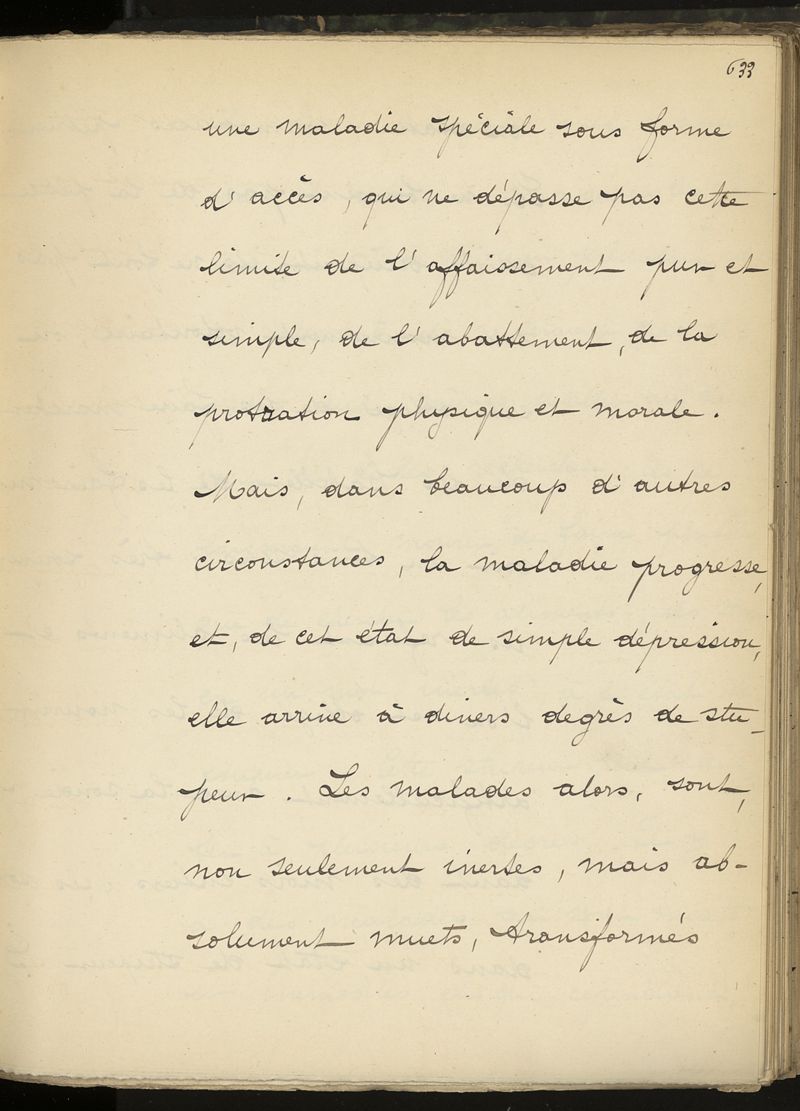 633
une maladie spéciale sous forme
d'accès, qui ne dépasse pas cette
limite de l'affaissement pur et
simple, de l'abattement, de la
protration physique et morale.
Mais, dans beaucoup d'autres
circonstances, la maladie progresse,
et, de cet état de simple dépression,
elle arrive à divers degrès de stu-
peur. Les malades alors, sont,
non seulement inertes, mais ab-
solument muets, transformés